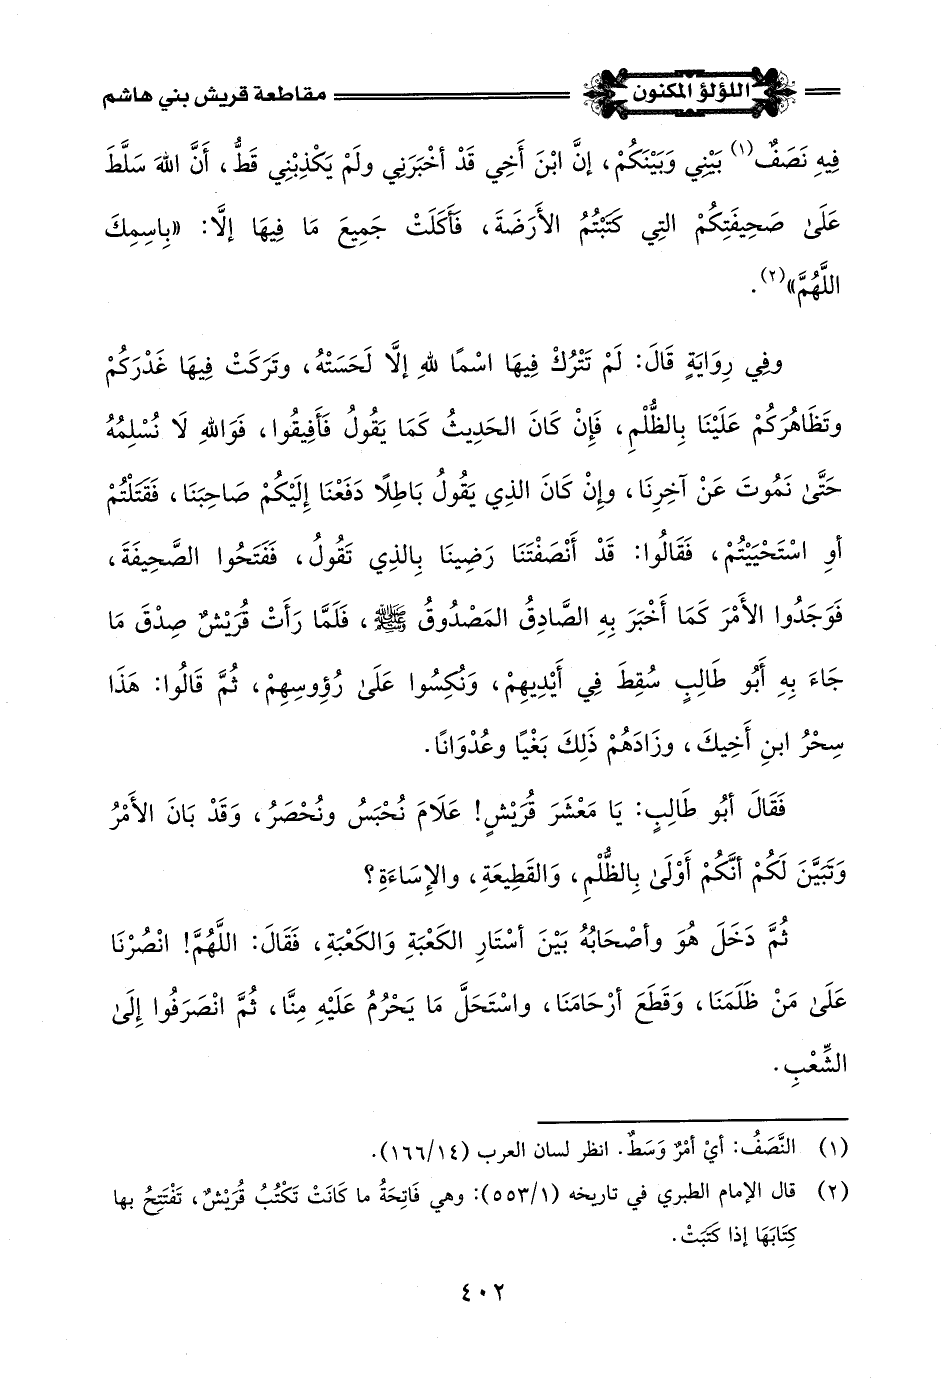 اللؤلؤ المكنون مقاطعة قريش بني هاشم
فِيهِ نَصَفٌ(١) بَيْنِي وَبَيْنَكُمْ، إنَّ ابْنَ أَخِي قَدْ أخْبَرَنِي ولَمْ يَكْذِبْنِي قَطُّ، أَنَّ اللهَ سَلَّطَ
عَلَىٰ صَحِيفَتِكُمْ التِي كَتَبْتُمُ الأَرَضَةَ، فَأَكَلَتْ جَمِيعَ مَا فِيهَا إلَّا: «بِاسِمِكَ
اللَّهُمَّ»(٢).
وفِي رِوَايَةٍ قَالَ: لَمْ تَتْرُكْ فِيهَا اسْمًا للهِ إلَّا لَحَسَتْهُ، وتَرَكَتْ فِيهَا غَدْرَكُمْ
وتَظَاهُرَكُمْ عَلَيْنَا بِالظُّلْمِ، فَإِنْ كَانَ الحَدِيثُ كَمَا يَقُولُ فَأَفِيقُوا، فَوَاللهِ لَا نُسْلِمُهُ
حَتَّىٰ نَمُوتَ عَنْ آخِرِنَا، وإنْ كَانَ الذِي يَقُولُ بَاطِلًا دَفَعْنَا إلَيْكُمْ صَاحِبَنَا، فَقَتَلْتُمْ
أوِ اسْتَحْيَيْتُمْ، فَقَالُوا: قَدْ أَنْصَفْتَنَا رَضِينَا بِالذِي تَقُولُ، فَفَتَحُوا الصَّحِيفَةَ،
فَوَجَدُوا الأَمْرَ كَمَا أخْبَرَ بِهِ الصَّادِقُ المَصْدُوقُ ﷺ، فَلَمَّا رَأَتْ قُرَيْشٌ صِدْقَ مَا
جَاءَ بِهِ أَبُو طَالِبٍ سُقِطَ فِي أَيْدِيهِمْ، وَنُكِسُوا عَلَىٰ رُؤوسِهِمْ، ثُمَّ قَالُوا: هَذَا
سِحْرُ ابنِ أَخِيكَ، وزَادَهُمْ ذَلِكَ بَغْيًا وعُدْوَانًا.
فَقَالَ أَبُو طَالِبٍ: يَا مَعْشَرَ قُرَيْشٍ! عَلَامَ نُحْبَسُ ونُحْصَرُ، وَقَدْ بَانَ الأَمْرُ
وَتَبَيَّنَ لَكُمْ أنَّكُمْ أَوْلَىٰ بِالظُّلْمِ، وَالقَطِيعَةِ، والإِسَاءَةِ؟
ثُمَّ دَخَلَ هُوَ وأصْحَابُهُ بَيْنَ أسْتَارِ الكَعْبَةِ وَالكَعْبَةِ، فَقَالَ: اللَّهُمَّ! انْصُرْنَا
عَلَىٰ مَنْ ظَلَمَنَا، وَقَطَعَ أرْحَامَنَا، واسْتَحَلَّ مَا يَحْرُمُ عَلَيْهِ مِنَّا، ثُمَّ انْصَرَفُوا إِلَىٰ
الشِّعْبِ.
(١) النَّصَفُ: أيْ أمْرٌ وَسَطٌ. انظر لسان العرب (١٦٦/١٤).
(٢) قال الإمام الطبري في تاريخه (٥٥٣/١): وهي فَاتِحَةُ ما كَانَتْ تَكْتُبُ قُرَيْشٌ، تَفْتَتِحُ بها
كِتَابَهَا إذا كَتَبَتْ.
٤٠٢